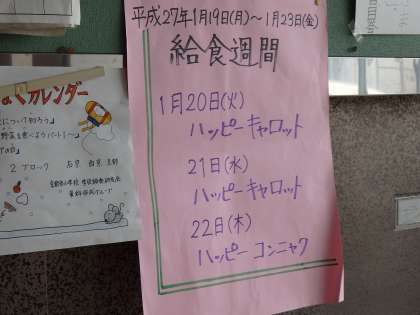 平成27年1月19日(月)～1月23日(金)
給食週間
1月20日(火)
ハッピーキャロット
21日(水)
ハッピーキャロット
22日(木)
ハッピーコンニャク
カレンダー
について知ろう」
2 ブロック